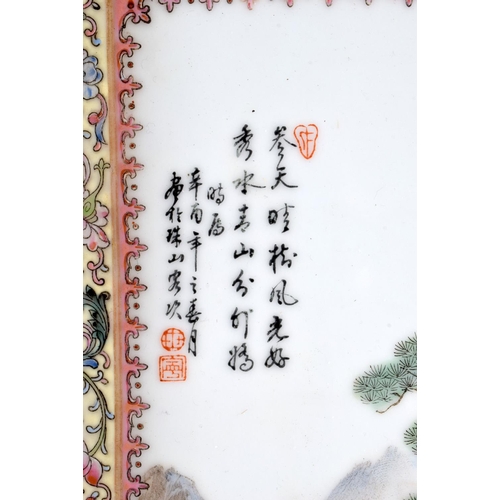 參天晴樹風光好
秀水青山分外嬌
時居
辛酉年之春月
畫作珠山客次